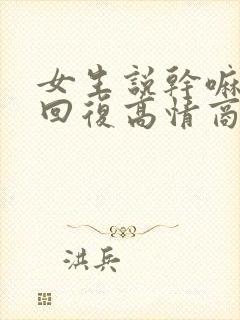 女生說幹嘛
回復高情商
洪兵